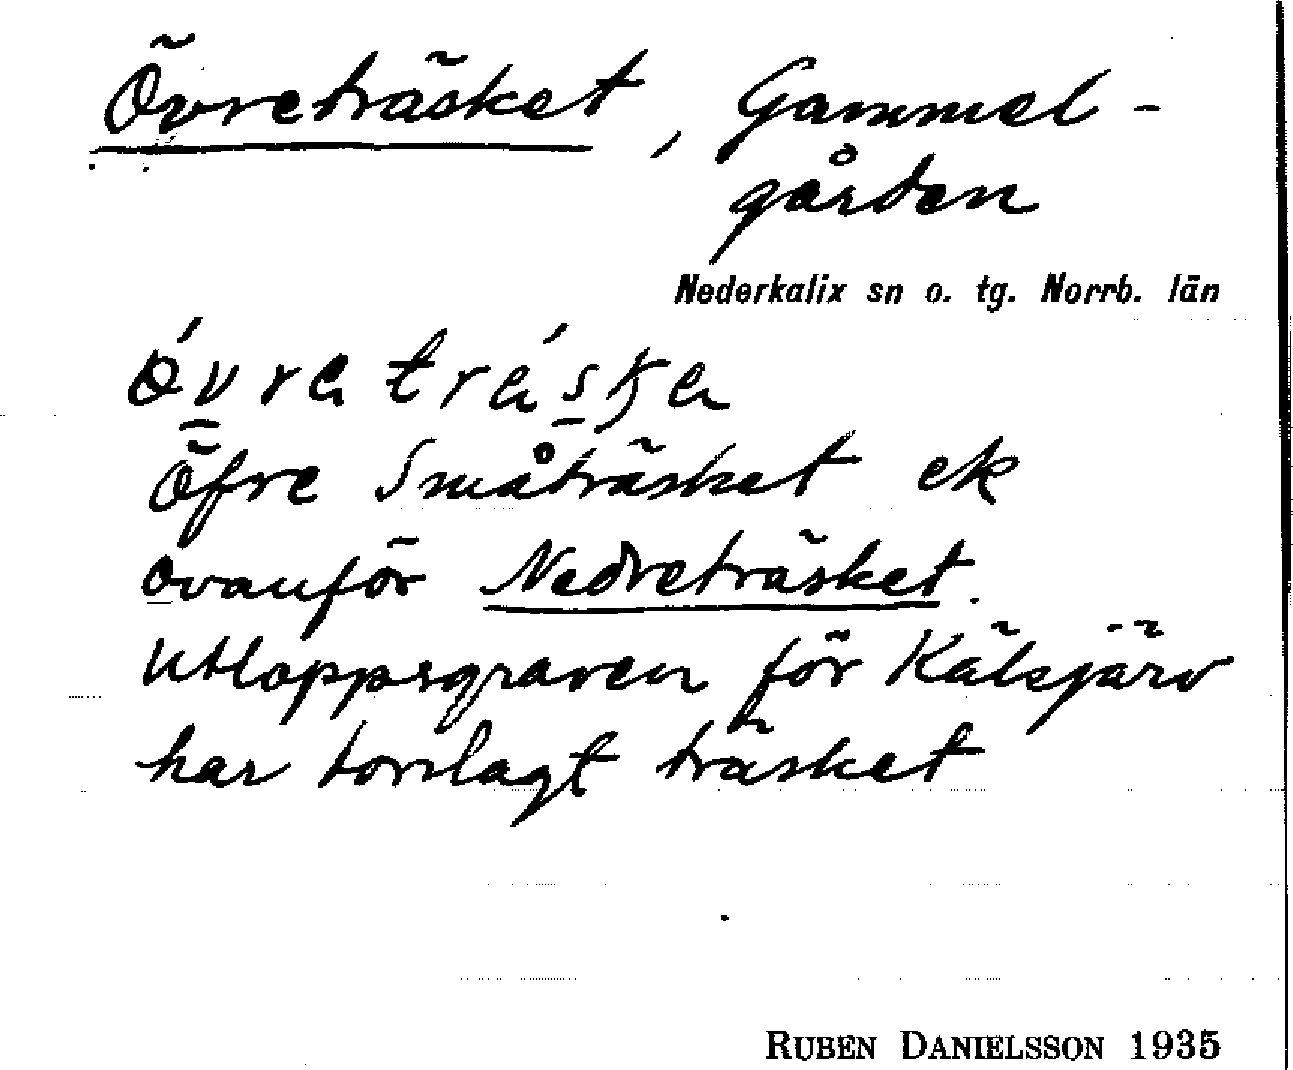 Övreträsket, Gammel-
gården
Nederkalix sn o. tg. Norrb. län
Öfre Småträsket ek
ovanför Nedreträsket.
Utloppsgraven för Kälsjärv
har torrlagt träsket
RUBEN DANIELSSON 1935